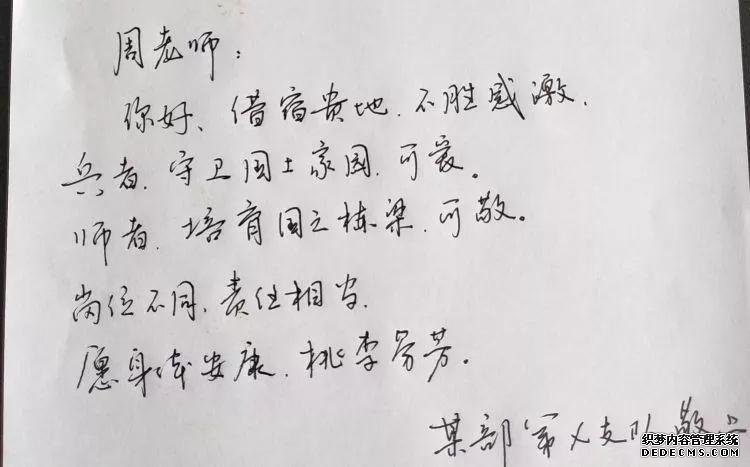 周老师:
你好、借宿贵地.不胜感激.
兵者.守卫国土家园.可爱。
师者.培育国之栋梁.可敬。
岗位不同.责任相当.
愿身体安康.桃李芬芳。
某部军人支队敬上
织梦内容管理系统
DEDECMS.COM